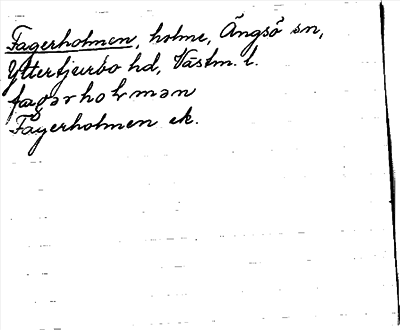 Fagerholmen, holme, Ängsö sn,
Yttertjurbo hd, Västm. l.
fagərholmən
Fagerholmen ek.